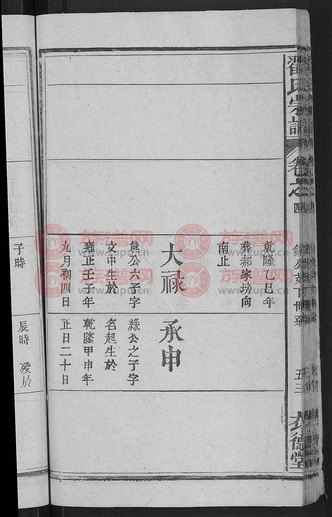 宗譜
卷之四
五三
德堂
乾隆乙巳年
葬郝家坊向
南止
大禄
熊公六子字
文中生於
雍正壬子年
九月初四日
子時
承申
禄公之子字
名起生於
乾隆甲申年
正月二十日
辰時
族譜网